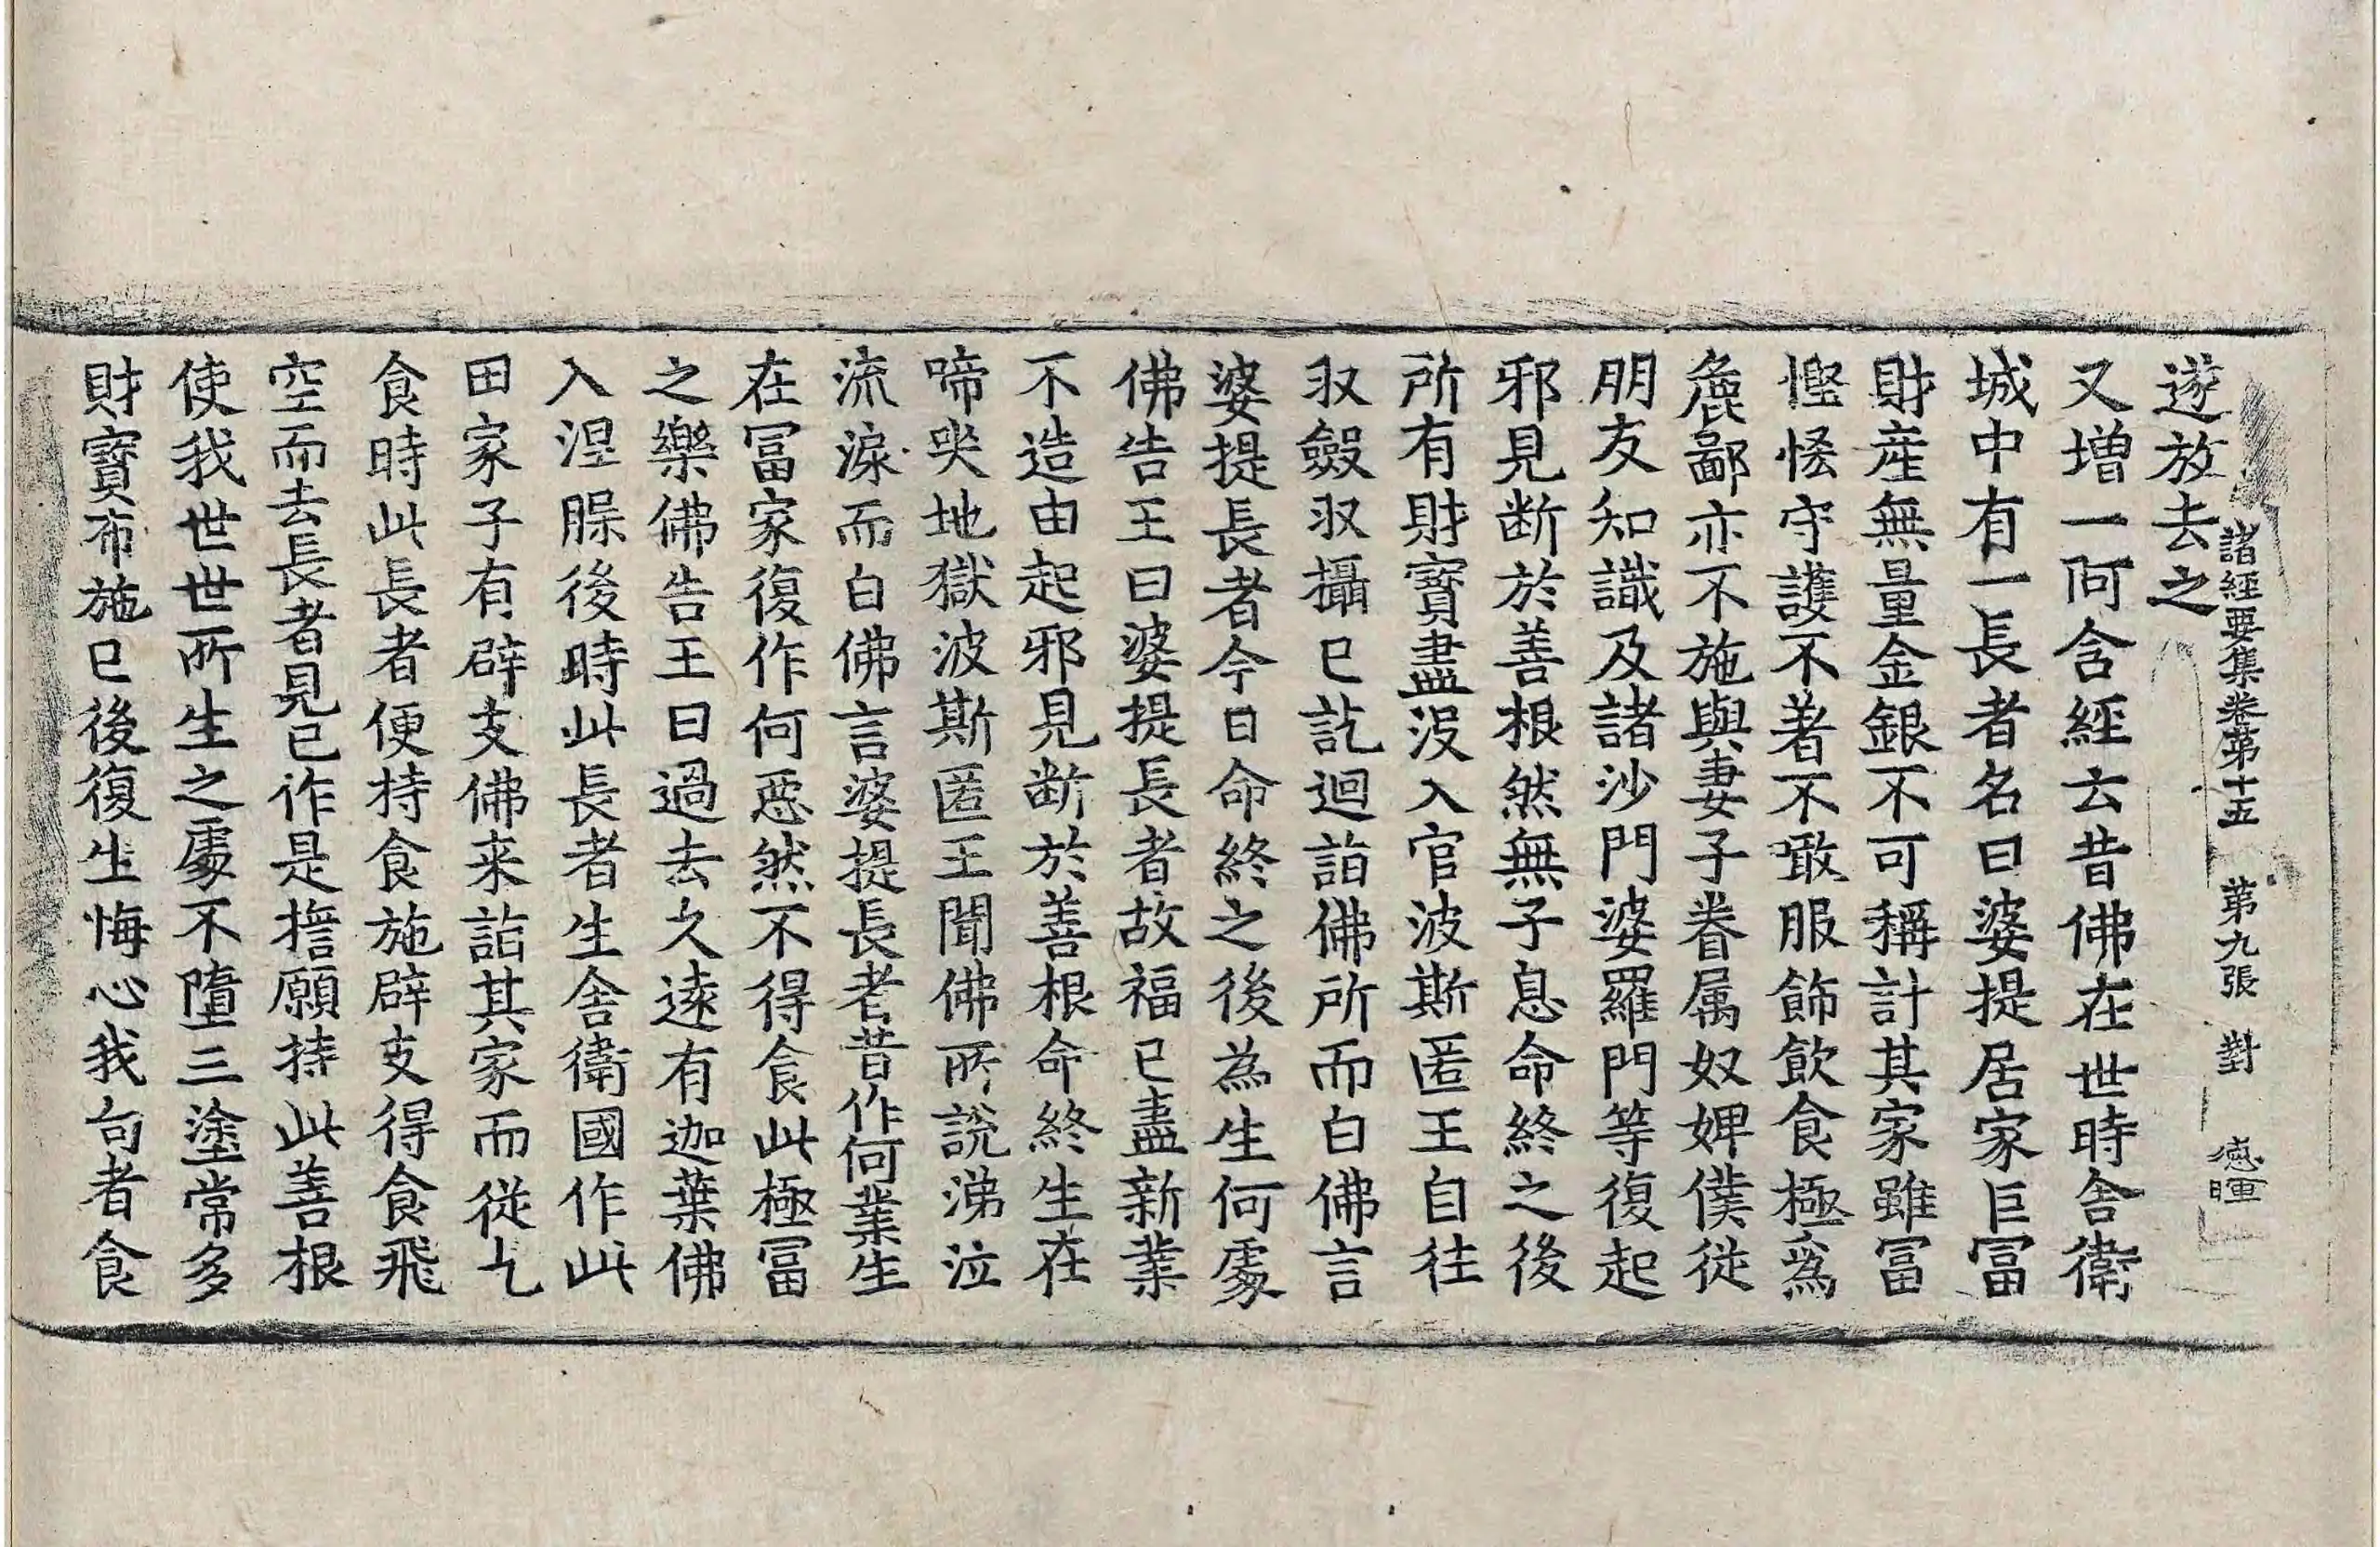 諸經要集卷第十五 第九張 對 應暉
遂放去之
又增一阿含經云昔佛在世時舍衛
城中有一長者名曰婆提居家巨冨
財産無量金銀不可稱計其家雖冨
慳恡守護不著不噉服飾飲食極爲
麁鄙亦不施與妻子眷属奴婢僕從
朋友知識及諸沙門婆羅門等復起
邪見断於善根然無子息命終之後
所有財寳盡没入官波斯匿王自往
収斂収攝已訖迴詣佛所而白佛言
婆提長者今日命終之後為生何處
佛告王曰婆提長者故福已盡新業
不造由起邪見断於善根命終生在
啼哭地獄波斯匿王聞佛所說涕泣
流淚而白佛言婆提長者昔作何業生
在冨家復作何惡然不得食此極冨
之樂佛告王曰過去久遠有迦葉佛
入涅槃後時此長者生舍衛國作此
田家子有辟支佛来詣其家而從乞
食時此長者便持食施辟支得食飛
空而去長者見已作是擔願持此善根
使我世世所生之處不墮三塗常多
財寳布施已後復生悔心我向者食